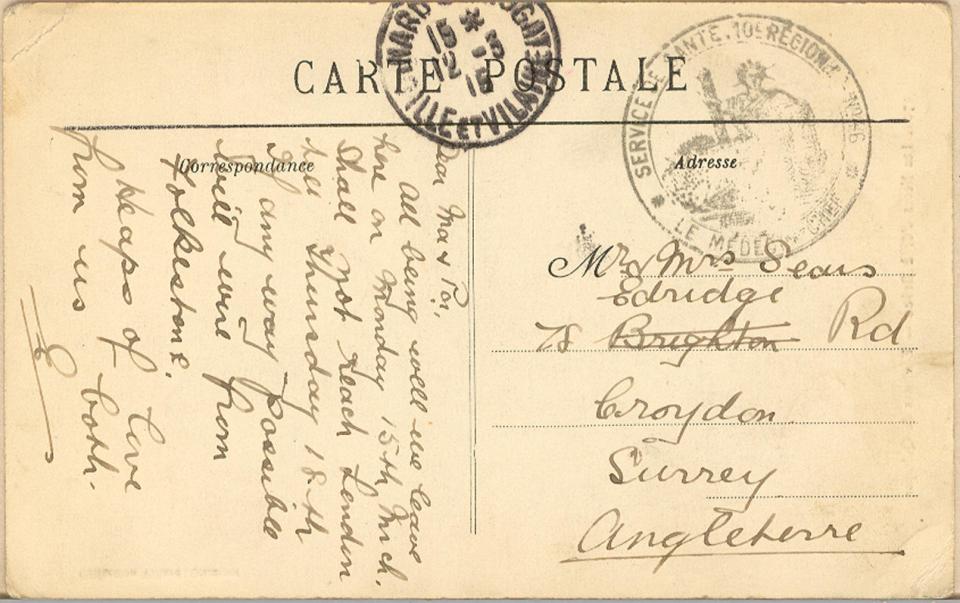 CARTE POSTALE
15 - 3
12 15
ILLE ET VILAINE
SERVICE DE SANTÉ. 10E RÉGION
LE MÉDECIN CHEF
Correspondance
Adresse
Dear Ma & Pa,
All being well we leave
here on Monday 15th, Mch.
Shall not reach London
till Thursday 18th
If any way possible
will wire from
Folkestone.
Heaps of love
from us both.
Mr & Mrs Sears
Edridge
78 Brighton Rd
Croydon
Surrey
Angleterre